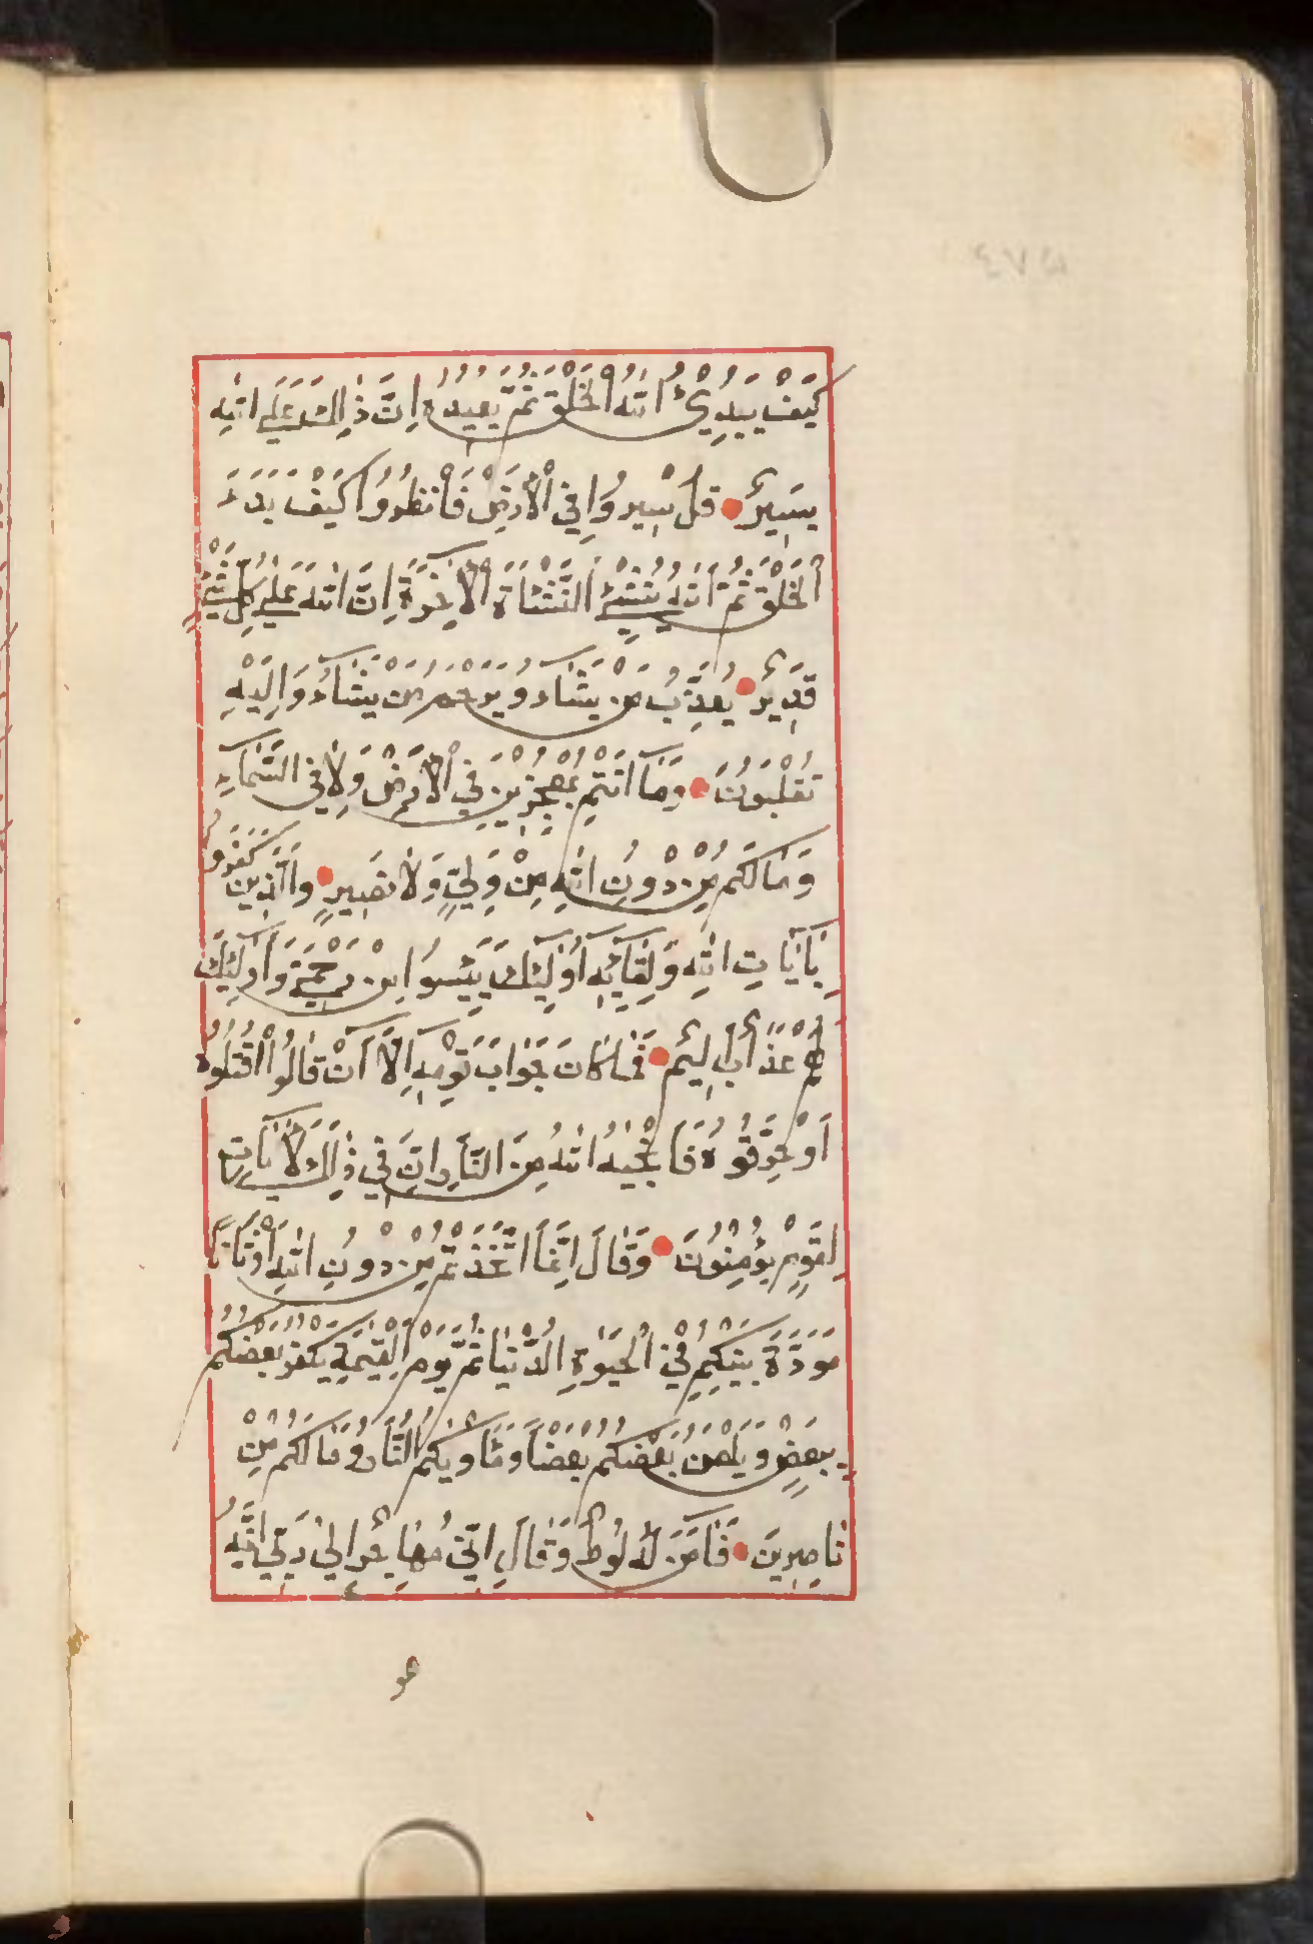 كَيْفَ يُبْدِئُ اللهُ الْخَلْقَ ثُمَّ يُعِيدُهُ اِنَّ ذٰلِكَ عَلَى اللهِ
يَسِيرٌ قُلْ سِيرُوا فِي الْاَرْضِ فَانْظُرُوا كَيْفَ بَدَءَ
الْخَلْقَ ثُمَّ اللهُ يُنْشِئُ النَّشْاَةَ الْاٰخِرَةَ اِنَّ اللهَ عَلٰى كُلِّ شَيْءٍ
قَدِيرٌ يُعَذِّبُ مَنْ يَشَاءُ وَيَرْحَمُ مَنْ يَشَاءُ وَاِلَيْهِ
تُقْلَبُونَ وَمَا اَنْتُمْ بِمُعْجِزِينَ فِي الْاَرْضِ وَلَا فِي السَّمَاءِ
وَمَا لَكُمْ مِنْ دُونِ اللهِ مِنْ وَلِيٍّ وَلَا نَصِيرٍ وَالَّذِينَ كَفَرُوا
بِاٰيَاتِ اللهِ وَلِقَائِهِ اُولٰئِكَ يَئِسُوا مِنْ رَحْمَتِي وَاُولٰئِكَ
لَهُمْ عَذَابٌ اَلِيمٌ فَمَا كَانَ جَوَابَ قَوْمِهِ اِلَّا اَنْ قَالُوا اقْتُلُوهُ
اَوْ حَرِّقُوهُ فَاَنْجٰيهُ اللهُ مِنَ النَّارِ اِنَّ فِي ذٰلِكَ لَاٰيَاتٍ
لِقَوْمٍ يُؤْمِنُونَ وَقَالَ اِنَّمَا اتَّخَذْتُمْ مِنْ دُونِ اللهِ اَوْثَانًا
مَوَدَّةَ بَيْنِكُمْ فِي الْحَيٰوةِ الدُّنْيَا ثُمَّ يَوْمَ الْقِيٰمَةِ يَكْفُرُ بَعْضُكُمْ
بِبَعْضٍ وَيَلْعَنُ بَعْضُكُمْ بَعْضًا وَمَاْوٰيكُمُ النَّارُ وَمَا لَكُمْ مِنْ
نَاصِرِينَ فَاٰمَنَ لَهُ لُوطٌ وَقَالَ اِنِّي مُهَاجِرٌ اِلٰى رَبِّي اِنَّهُ
هو